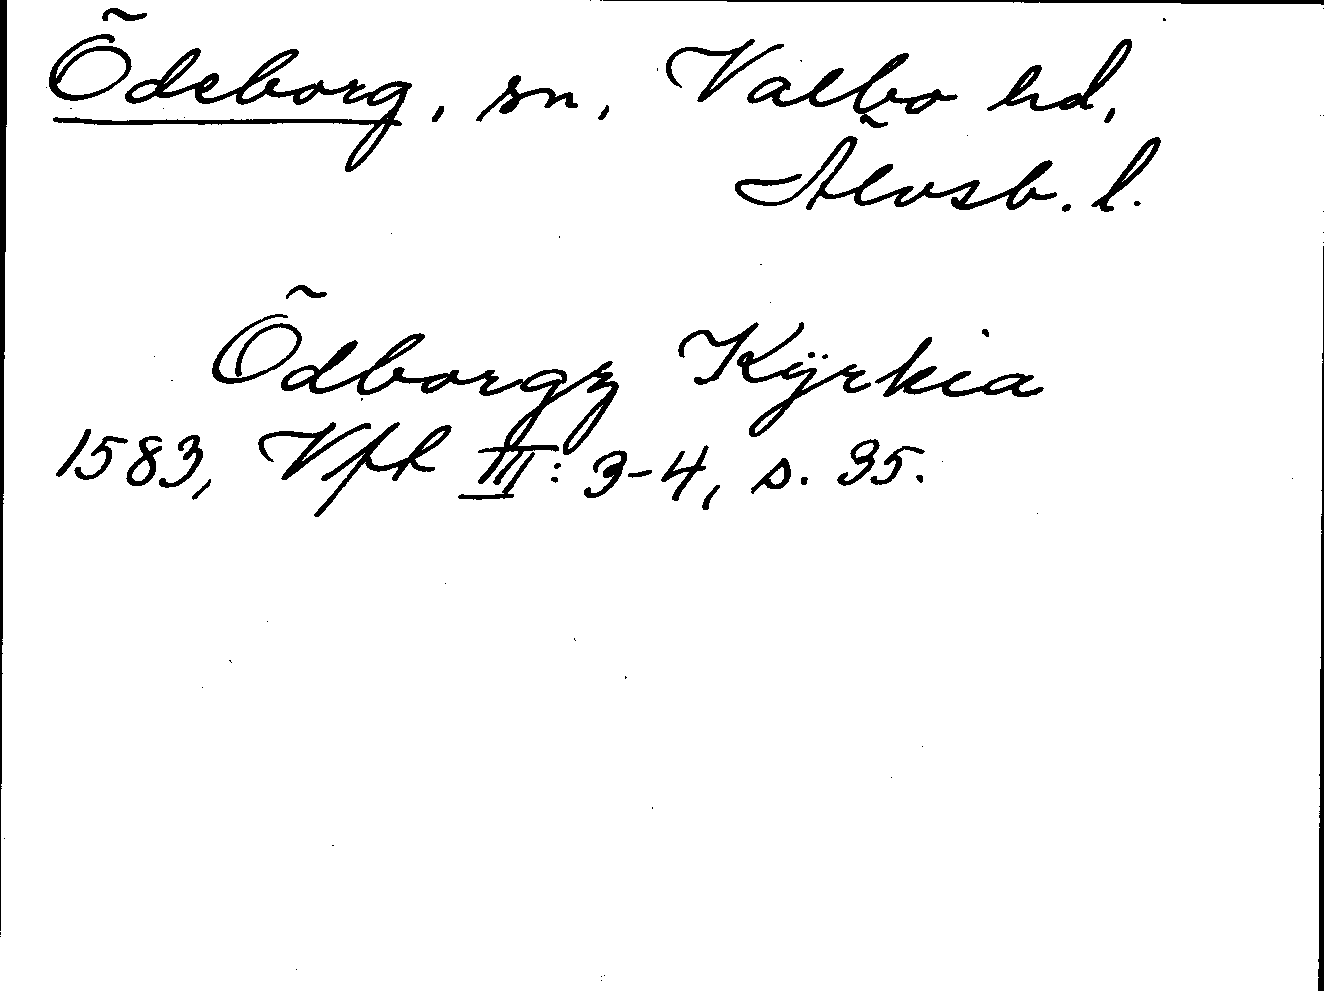 Ödeborg, sn, Valbo hd,
Älvsb. l.
Ödborgz Kÿrkia
1583, Vfh III: 3-4, s. 35.